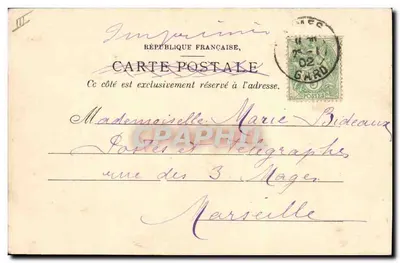 III
Imprimé
RÉPUBLIQUE FRANÇAISE,
CARTE POSTALE
Ce côté est exclusivement réservé à l'adresse.
02
GARD
Mademoiselle Marie Bideaux
Postes et Télégraphes
rue des 3 Mages
Marseille